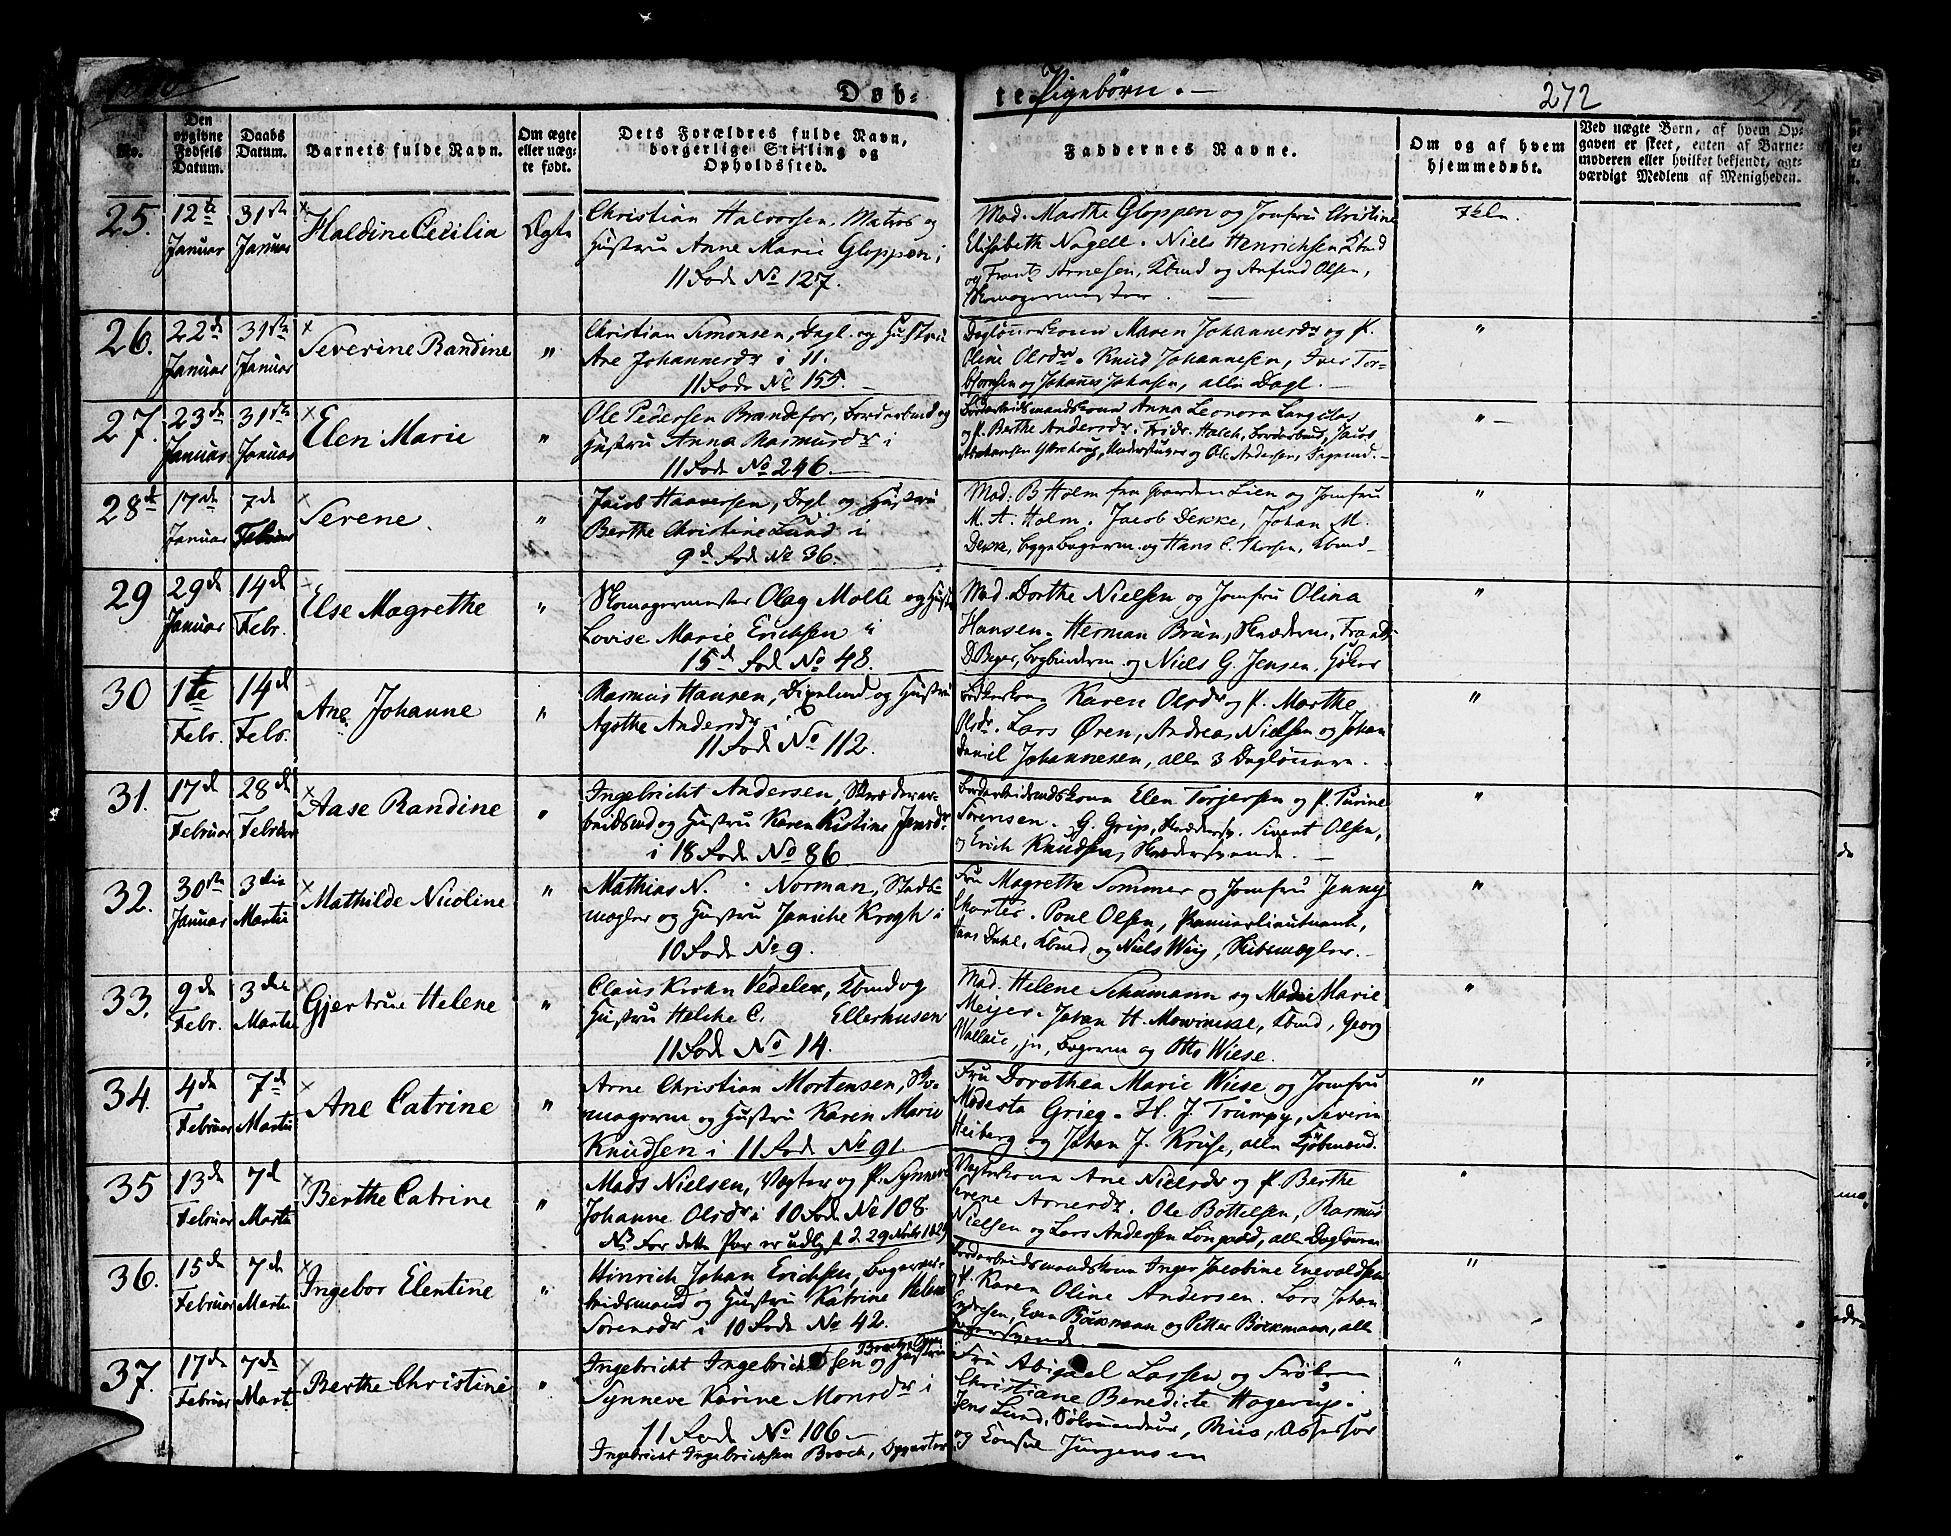 Døb-
te. Pigebørn.
272
No.
Den opgivne Fødsels Datum.
Daabs Datum.
Barnets fulde Navn.
Om ægte eller uægte født.
Dets Forældres fulde Navn, borgerlige Stilling og Opholdssted.
Faddernes Navne.
Om og af hvem hjemmedøbt.
Ved uægte Børn, af hvem Opgaven er skeet, enten af Barnemoderen eller hvilket bekjendt, agtværdigt Medlem af Menigheden.
25. 12te Januar 31te Januar
Haldine Cecilia
Ægte
Christian Halvorsen, Matros og
Hustru Anne Marie Gloppen i
11 Rode No 127.
Mad. Marthe Gloppen og Jomfru Christine
Elisabeth Nagell. Niels Henrichsen Kbmd
og Frantz Arnesen, Kbmd og Anfind Olsen,
Skomagermester.
26. 22de Januar 31te Januar
Severine Randine
"
Christian Simonsen, Dagl. og Hustru
Ane Johannesdr i 11.
11 Rode No 155.
Daglønnerkone Maren Johannesdr og P.
Oline Olsdr. Knud Johannesen, Iver Tor-
bjørnsen og Johannes Johnsen, alle Dagl.
"
27. 23de Januar 31te Januar
Elen Marie
"
Ole Pedersen Brandefor, Bordarbmd og
Hustru Anna Rasmusdr i
11 Rode No 246.
Bordarbeidsmandskone Anna Leonora Langeclas
og P. Berthe Andersdr. Fridr. Halck, Bordarbmd, Jacob
Abrahamsen og Ole Andersen,
"
28de 17de Januar 7de Februar
Serene.
"
Jacob Haaversen, Dagl. og Hustru
Berthe Christine Lund i
9de Rode No 36.
Mad. B Holm fra Gaarden Lien og Jomfru
M. A. Holm. Jacob Dekke, Johan M.
Dekke, og Hans C. Thorsen, Kbmd
"
29 29de Januar 14de Febr.
Else Magrethe
"
Skomagermester Olag Molle og Hustru
Lovise Marie Erichsen i
15de Rode No 48.
Mad. Dorthe Nielsen og Jomfru Olina
Hansen. Herman Brun, Skræderm, Frantz
D Beyer, Bogbinderm og Niels G. Jensen, Høker
"
30 1te Febr. 14de Febr.
Ane Johanne
"
Rasmus Hansen, og Hustru
Agothe Andersdr i
11 Rode No 112.
Bødkerkone Karen Olsdr og P. Marthe
Olsdr. Lars Øren, Andreas Nielsen og Johan
Daniel Johannesen, alle 3 Daglønnere.
"
31. 17de Februar 28de Februar
Aase Randine
"
Ingebricht Andersen, Skræderar-
beidsmd og Hustru Karen Kistine Jensdr
i 18 Rode No 86
Bordarbeidsmdskone Elen Torjersen og P. Turine
Sørensen. G. Grip, Skrædersv. Sivert Olsen,
og Erich Knudsen, Skrædersvende.
"
32. 30te Januar 3die Martii
Mathilde Nicoline
"
Mathias N. Norman, Stads-
mægler og Hustru Janiche Krogh i
10 Rode No 9.
Fru Magrethe Sommer og Jomfru Jenny
Charter. Poul Olsen, Premierlieutnant,
Hans Dahl, Kbmd og Niels Wiig, Skibsmægler.
"
33. 9de Febr. 3die Marti
Gjertrue Helene
"
Claus Krohn Vedeler, Kbmd og
Hustru Helche C. Ellerhusen
11 Rode No 14.
Mad. Helene Schumann og Marie
Meijer. Johan H. Mowinckel, Kbmd, Georg
Wallace, jn, Bagerm og Otto Wiese.
"
34. 4de Februar 7de Martii
Ane Catrine
"
Arne Christian Mortensen, Sko-
magerm og Hustru Karen Marie
Knudsen i 11 Rode No 91.
Fru Dorothea Marie Wiese og Jomfru
Modesta Grieg. H. J. Trumpy, Severin
Heiberg og Johan J. Kruse, alle Kjøbmænd.
"
35 13de Februar 7de Marti
Berthe Catrine
"
Mads Nielsen, Vægter og P. Synneve
Johanne Olsdr i 10 Rode No 108.
NB For dette Par er udlyst d. 29 Novbr 1829
Vægterkone Ane Nielsdr og P. Berthe
Serene Arnesdr. Ole Bottelsen, Rasmus
Nielsen og Lars Andersen alle Dagløner
"
36. 15de Februar 7de Marti
Ingebor Elentine
"
Hinrich Johan Erichsen, Bagerar-
beidsmand og Hustru Katrine Helene
Sørensdr i 10 Rode No 42.
Bordarbeidsmandskone Inger Jacobine Enevoldsen
og P. Karen Oline Andersen. Lars Johan
Endresen, Even Böckmann og Petter Böckmann, alle
Bagersvende.
"
37. 17de Februar 7de Marti
Berthe Christine
"
Ingebricht Ingebrichtsen og Hustru
Synneve Karine Monsdr i
11 Rode No 106
Ingebricht Ingebrichtsen Broch,
Fru Abigael Lassen og Frøken
Christiane Benedicte Hagerup.
Jens Lund, Riis, Assessor
og Consul Jürgensen
"